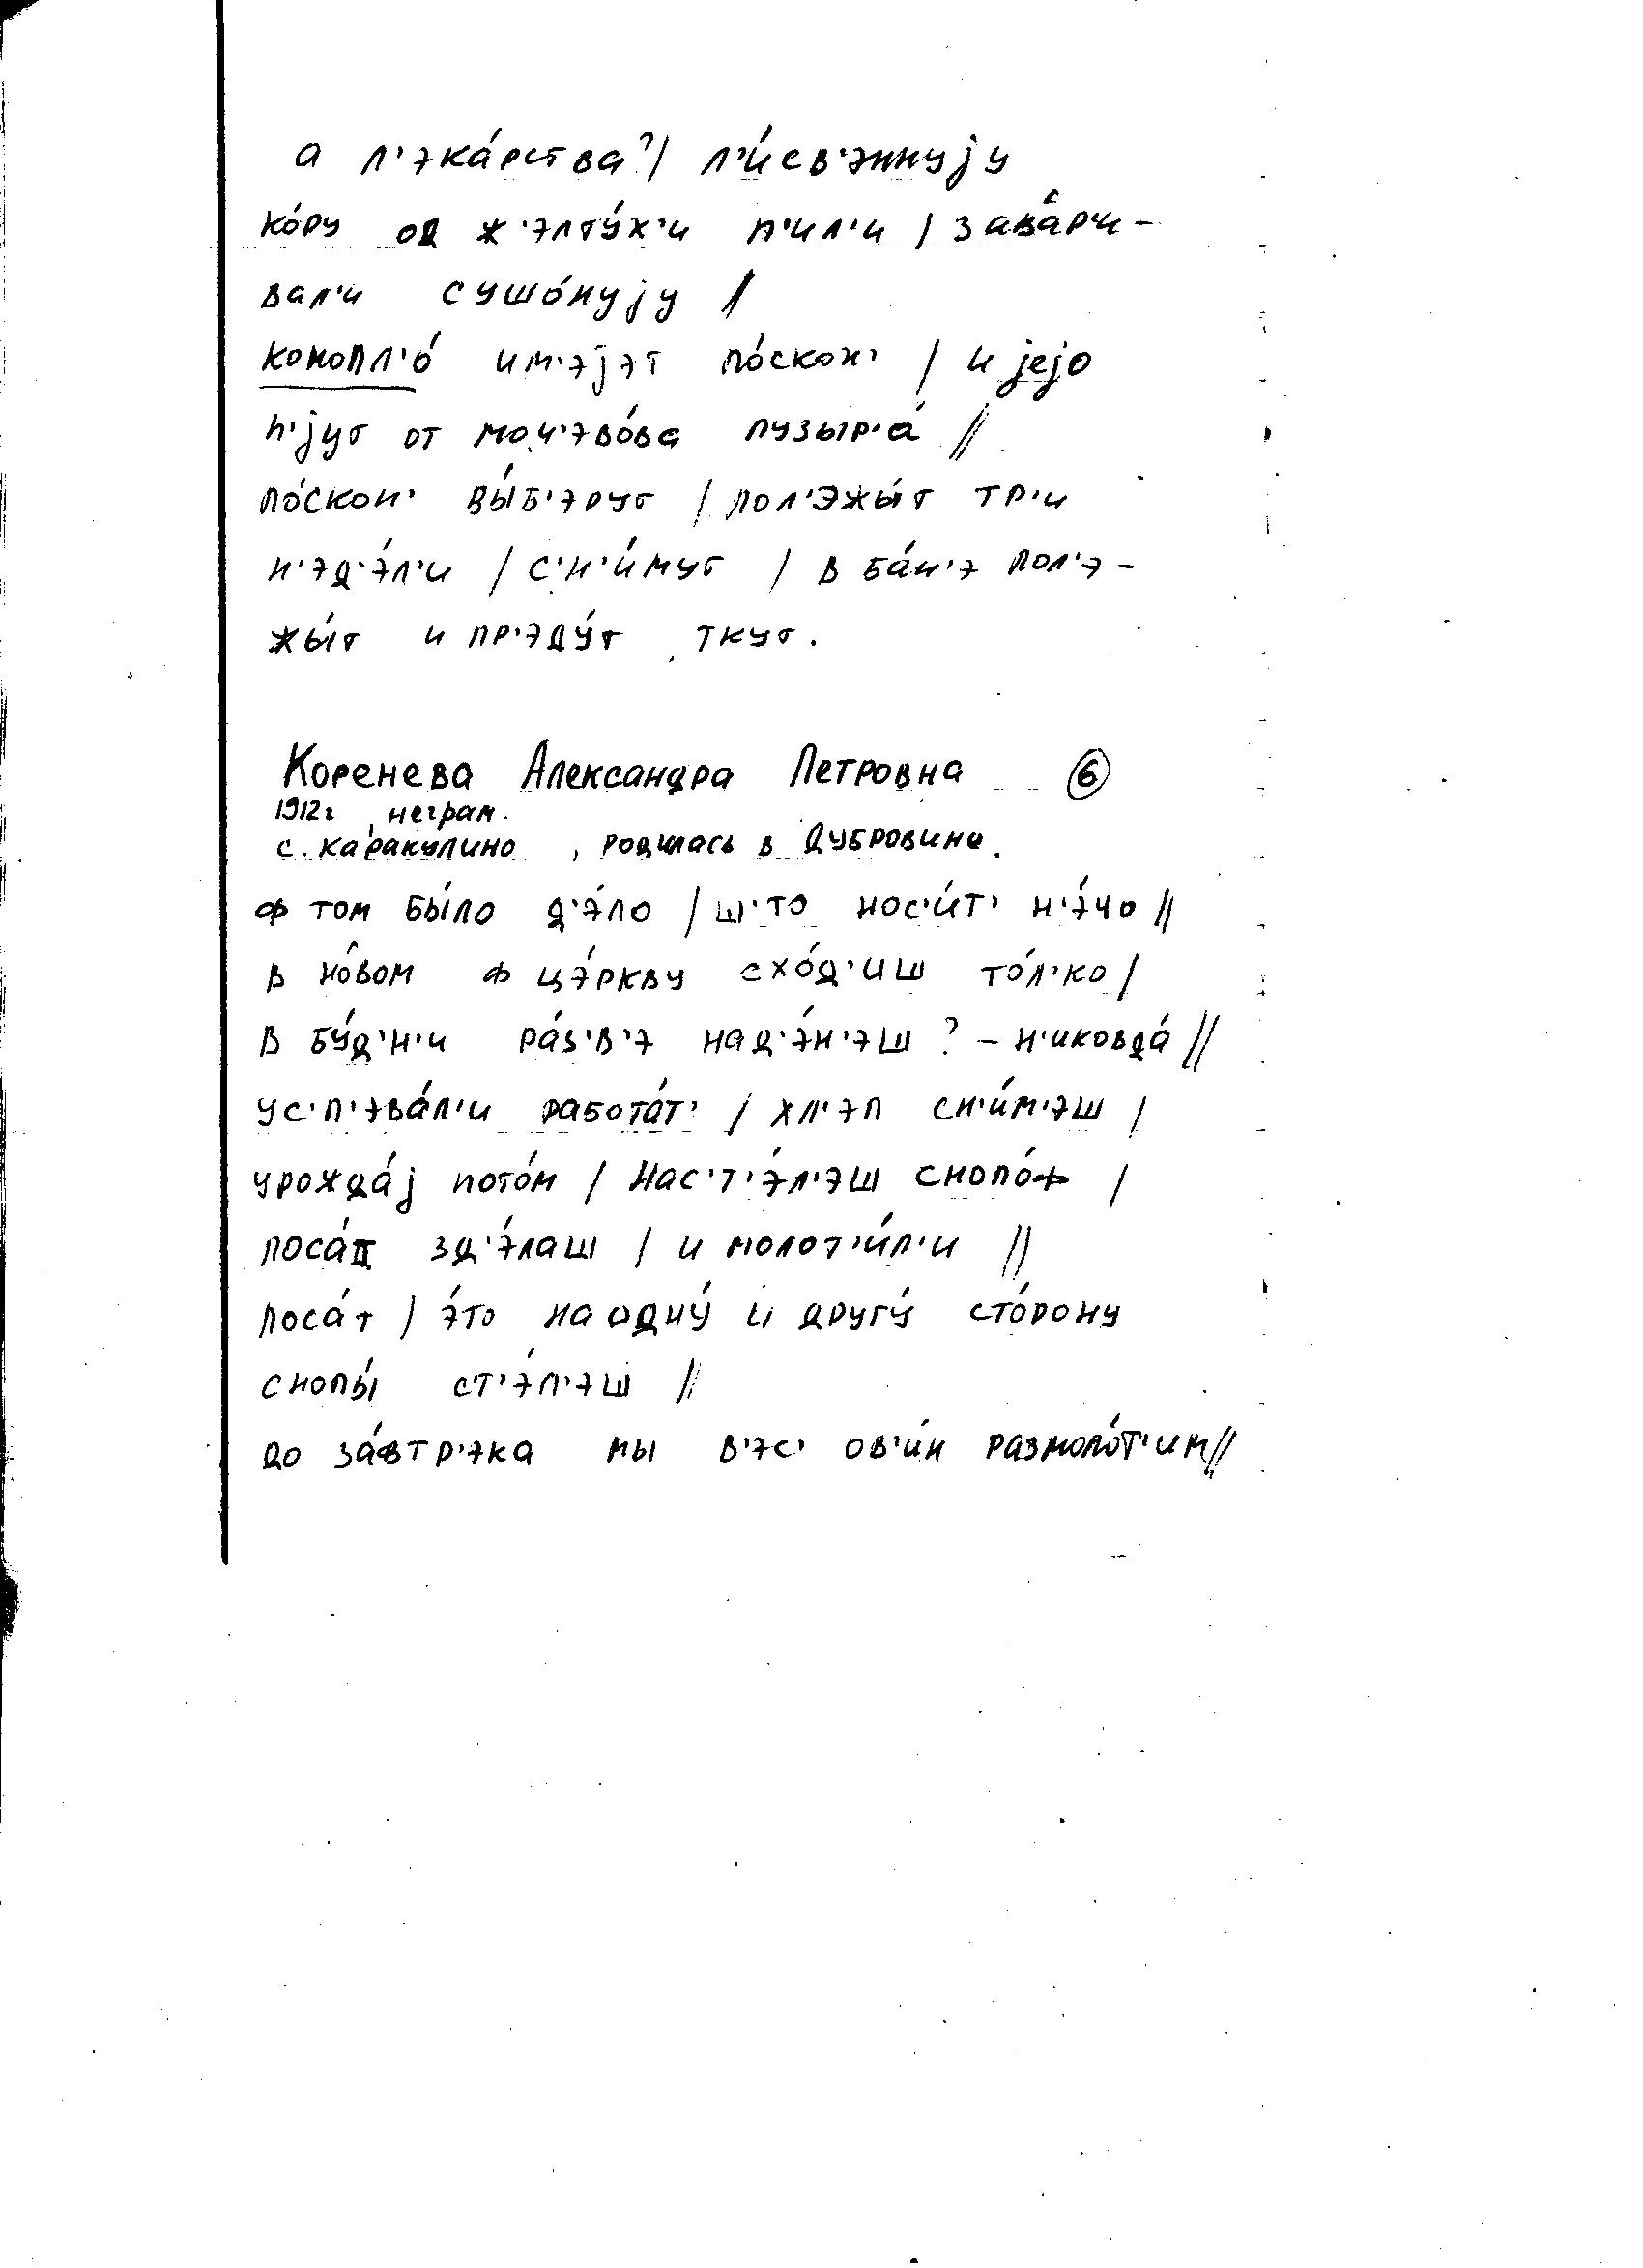 а л'экáрства?/ л'и́св'эннуjу
кóру од ж'элту́х'и п'ил'и / завáри-
вал'и сушóнуjу //
конопл'ó им'эjэт пóскон' / и jejo
п'jут от моч'эвóва пузыр'á //
пóскон' вы́б'эрут / пол'эжы́т тр'и
н'эд'э́л'и / с'н'и́мут / в бáн'э пол'э-
жы́т и пр'эду́т, ткут.
Коренева Александра Петровна 6
1912г, неграм.
с. Каракулино, родилась в Дубровине.
ф том бы́ло д'э́ло / ш'то нос'и́т' н'э́чо //
в нóвом ф цэ́ркву схóд'иш тóл'ко /
в бу́д'н'и рáз'в'э над'э́н'эш? – н'иковдá //
ус'п'эвáл'и работáт' / хл'эп сн'и́м'эш /
урождáj потóм / нас'т'э́л'эш снопóф /
посáд зд'э́лаш / и молот'и́л'и //
посáт / э́то на одну́ и другу́ стóрону
снопы́ ст'э́л'эш //
до зáвтр'эка мы в'эс' ов'и́н размолóт'им //